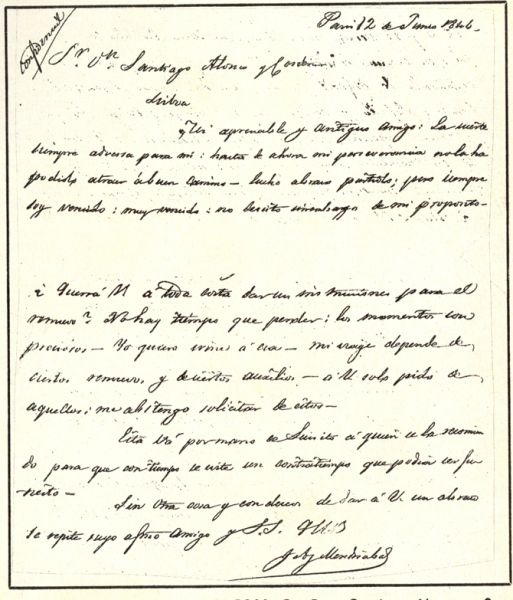 Confidencial
Paris 12 de Junio 1846.
Sr. Dn. Santiago Alonso y Cordero
Lisboa
Mi apreciable y antiguo amigo: La suerte
siempre adversa para mi: hasta ahora mi perseverancia no la ha
podido atraer á buen camino — lucho á brazo partido; pero siempre
soy vencido; muy vencido: no desisto sin embargo de mi proposito —
¿Querrá U á toda costa dar un sus para el
renuevo? No hay tiempo que perder: los momentos son
preciosos — Yo quiero irme á esa — mi viage depende de
ciertos renuevos y de ciertos auxilios — á U solo pido de
aquellos; me abstengo solicitar de estos —
Esta vá por mano de á quien se la recomien
do para que con tiempo se evite un contratiempo que podria ser fu
nesto —
Sin otra cosa y con deseos de dar á U un abrazo
se repite suyo afmo amigo y S.S. Q.B.S.M.
J. A. y Mendizabal